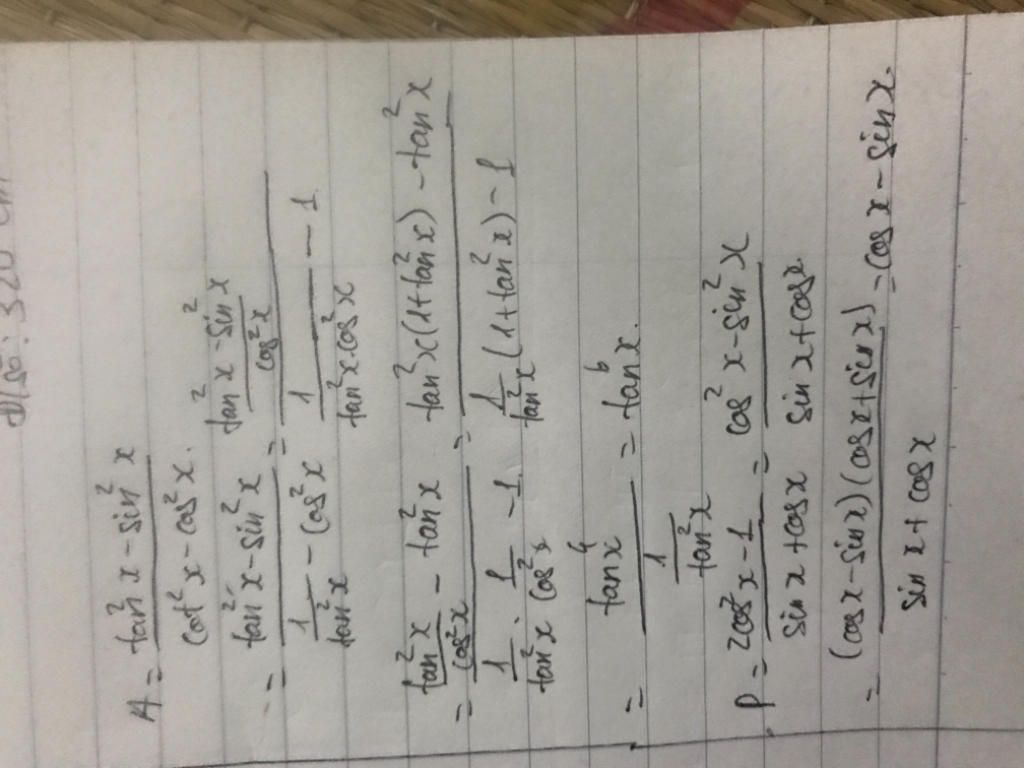 Đ/số: 320 cm
A = \frac{tan^2 x - sin^2 x}{cot^2 x - cos^2 x.}
= \frac{tan^2 x - sin^2 x}{\frac{1}{tan^2 x} - cos^2 x} = \frac{\frac{tan^2 x - sin^2 x}{cos^2 x}}{\frac{1}{tan^2 x cos^2 x} - 1}
= \frac{\frac{tan^2 x}{cos^2 x} - tan^2 x}{\frac{1}{tan^2 x} . \frac{1}{cos^2 x} - 1} = \frac{tan^2 x (1 + tan^2 x) - tan^2 x}{\frac{1}{tan^2 x} (1 + tan^2 x) - 1}
= \frac{tan x^4}{\frac{1}{tan^2 x}} = tan^6 x.
P = \frac{2cos^2 x - 1}{sin x + cos x} = \frac{cos^2 x - sin^2 x}{sin x + cos x}
= \frac{(cos x - sin x)(cos x + sin x)}{sin x + cos x} = cos x - sin x.